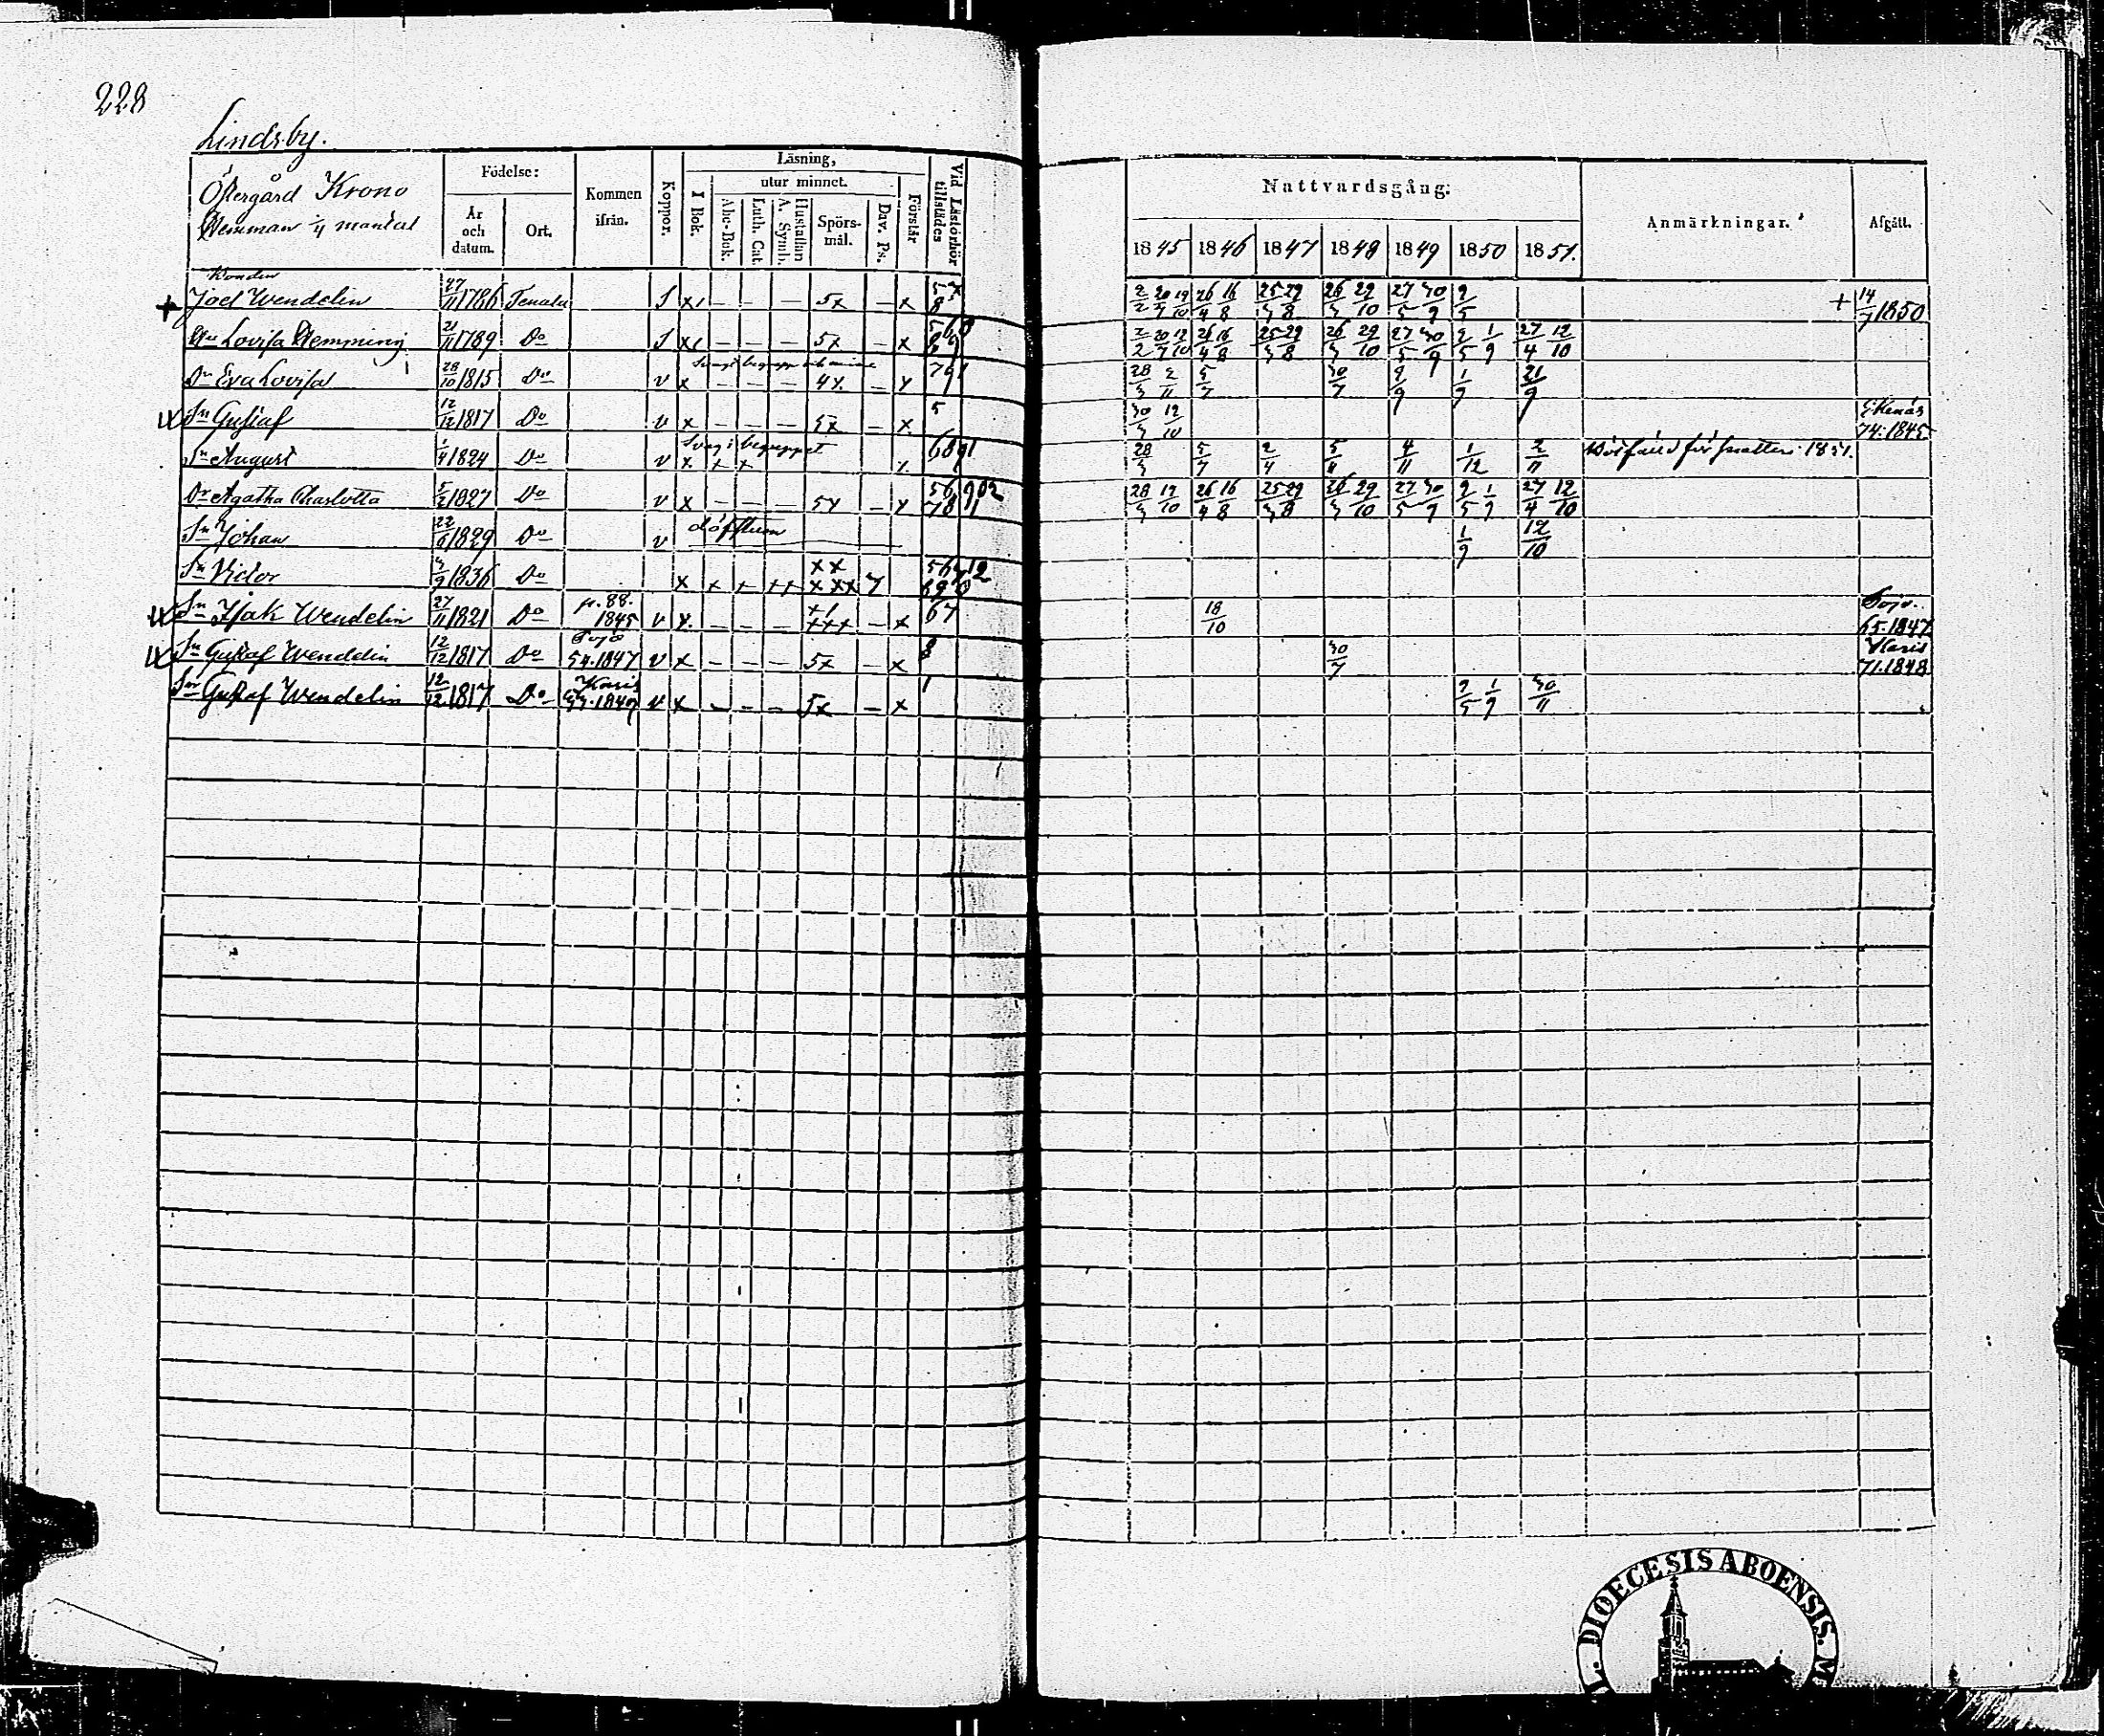 228
Lindsby.
Östergård Krono
Hemman 1/4 mantal
Födelse:
År och datum.
Ort.
Kommen ifrån.
Koppor.
Läsning,
I Bok.
utur minnet.
Abc-Bok.
Luth. Cat.
Hustaflan A. Symb.
Spörs-mål.
Dav. Ps.
Förstår
Vid Läsförhör tillstädes
Nattvardsgång:
1845 1846 1847 1848 1849 1850 1851.
Anmärkningar.
Afgått.
Bonden
+ Joel Wendelin 27/11 1786 Tenala S x1 – – – 5x – x 2/2 20/7 19/10 26/4 16/8 25/3 29/8 26/3 29/10 27/5 30/9 9/5 + 14/7 1850
Hu Lovisa Hemming 21/11 1789 Do S x1 – – – 5x – x 2/2 20/7 12/10 26/4 16/8 25/3 29/8 26/3 29/10 27/5 30/9 9/5 1/9 27/4 12/10
Dr Eva Lovisa 28/10 1815 Do v x – – – 4x – x 791 28/3 2/11 5/7 30/7 9/9 1/9 21/9
Sn Gustaf 12/12 1817 Do v x – – – 5x – x 5 30/3 12/10 Ekenäs 74.1845
Svag i begreppet
Sn August 1/4 1824 Do v x + + x 6891 28/3 5/7 2/4 5/11 4/11 1/12 2/11 1851.
Dr Agatha Charlotta 5/2 1827 Do v x – – – 5x – x 28/3 19/10 26/4 16/8 25/3 29/8 26/3 29/10 27/5 30/9 9/5 1/9 27/4 12/10
Sn Johan 22/6 1829 Do v döfstum 1/9 12/10
Sn Victor 3/9 1836 Do x + + ++ xx xxx 7
Sn Isak Wendelin 27/11 1821 Do p. 88. 1845 v x – – – +++ – x 67 18/10 Pojo. 65.1847
Sn Gustaf Wendelin 12/12 1817 Do Pojo 54.1847 v x – – – 5x – x 8 30/7 Karis 71.1848
Son Gustaf Wendelin 12/12 1817 Do Karis 1849 v x – – – 5x – x 1 9/5 1/9 30/11
DIOECESIS ABOENSIS.